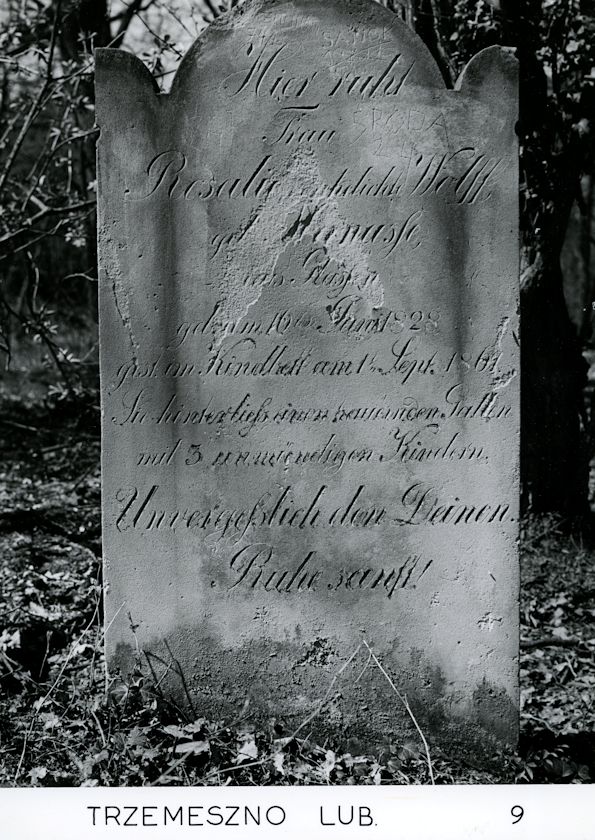 Hier ruht
Frau
Rosalie ehelichte Wolff,
geb. Manasse,
aus
geb. am 16ten Juni 1828
gest. im Kindbett am 1ten Sept. 1861
Sie hinterließ einen trauernden Gatten
mit 3 unmündigen Kindern.
Unvergeßlich den Deinen.
Ruhe sanft!
TRZEMESZNO LUB. 9